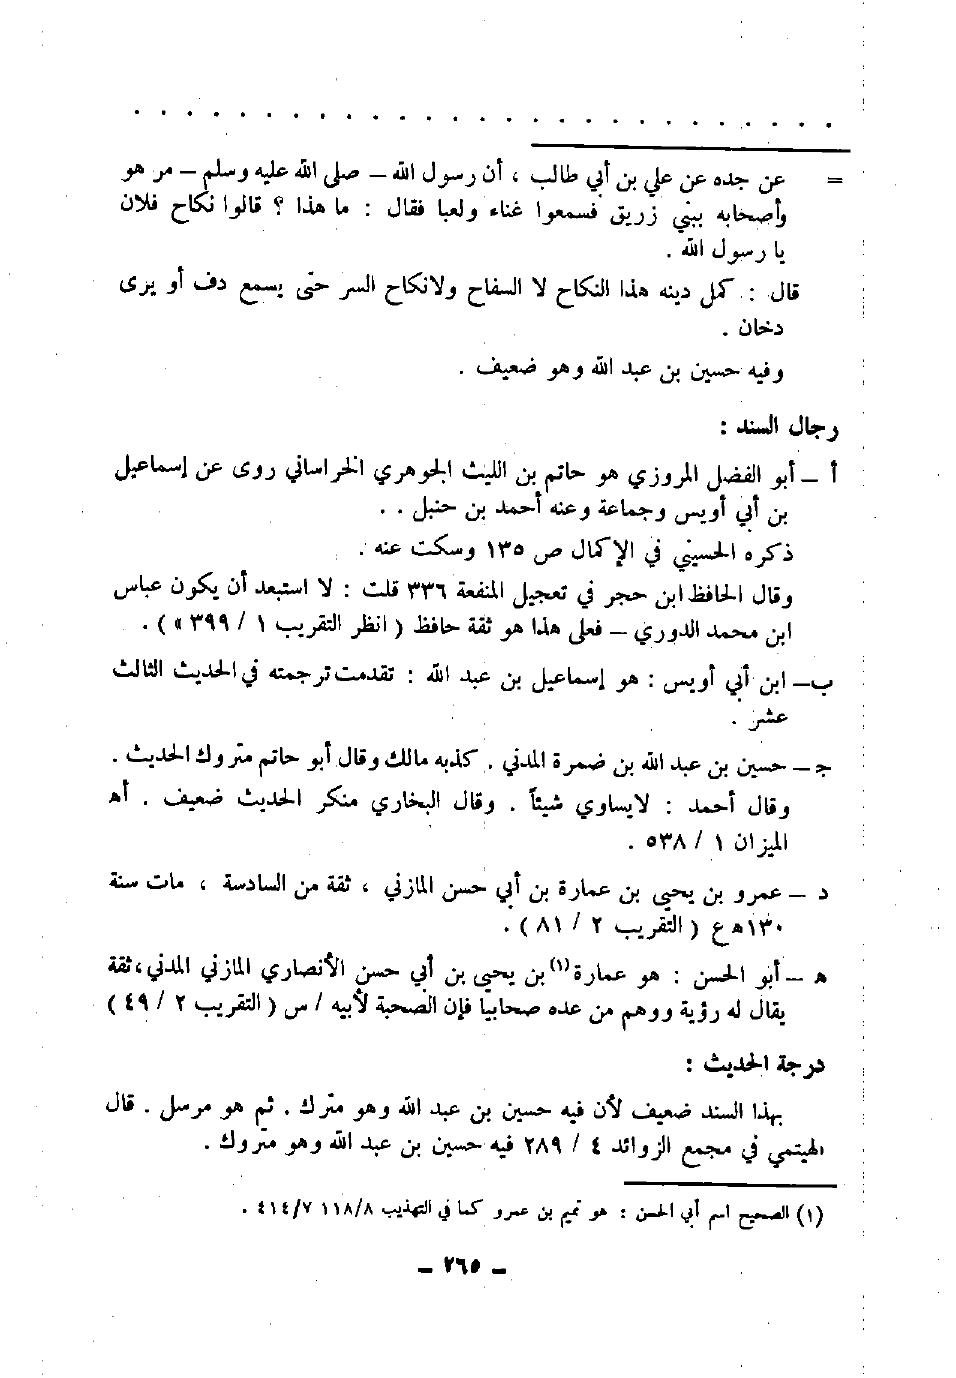 = عن جده عن علي بن أبي طالب ، أن رسول الله – صلى الله عليه وسلم – مر هو
وأصحابه ببني زريق فسمعوا غناء ولعبا فقال : ما هذا ؟ قالوا نكاح فلان
يا رسول الله .
قال : كمل دينه هذا النكاح لا السفاح ولانكاح السر حتى يسمع دف أو يرى
دخان .
وفيه حسين بن عبد الله وهو ضعيف .
رجال السند :
أ – أبو الفضل المروزي هو حاتم بن الليث الجوهري الخراساني روى عن إسماعيل
بن أبي أويس وجماعة وعنه أحمد بن حنبل . .
ذكره الحسيني في الإكمال ص ١٣٥ وسكت عنه .
وقال الحافظ ابن حجر في تعجيل المنفعة ٣٣٦ قلت : لا استبعد أن يكون عباس
ابن محمد الدوري – فعلى هذا هو ثقة حافظ ( انظر التقريب ١ / ٣٩٩ » ) .
ب – ابن أبي أويس : هو إسماعيل بن عبد الله : تقدمت ترجمته في الحديث الثالث
عشر .
جـ – حسين بن عبد الله بن ضمرة المدني . كذبه مالك وقال أبو حاتم متروك الحديث .
وقال أحمد : لايساوي شيئاً . وقال البخاري منكر الحديث ضعيف . أهـ
الميزان ١ / ٥٣٨ .
د – عمرو بن يحيى بن عمارة بن أبي حسن المازني ، ثقة من السادسة ، مات سنة
١٣٠هـ ع ( التقريب ٢ / ٨١ ) .
هـ – أبو الحسن : هو عمارة(١) بن يحيى بن أبي حسن الأنصاري المازني المدني ، ثقة
يقال له رؤية ووهم من عده صحابيا فإن الصحبة لأبيه / س ( التقريب ٢ / ٤٩ )
درجة الحديث :
بهذا السند ضعيف لأن فيه حسين بن عبد الله وهو مترك . ثم هو مرسل . قال
الهيتمي في مجمع الزوائد ٤ / ٢٨٩ فيه حسين بن عبد الله وهو متروك .
(١) الصحيح اسم أبي الحسن : هو تميم بن عمرو كما في التهذيب ١١٨/٨ ٤١٤/٧ .
– ٢٦٥ –